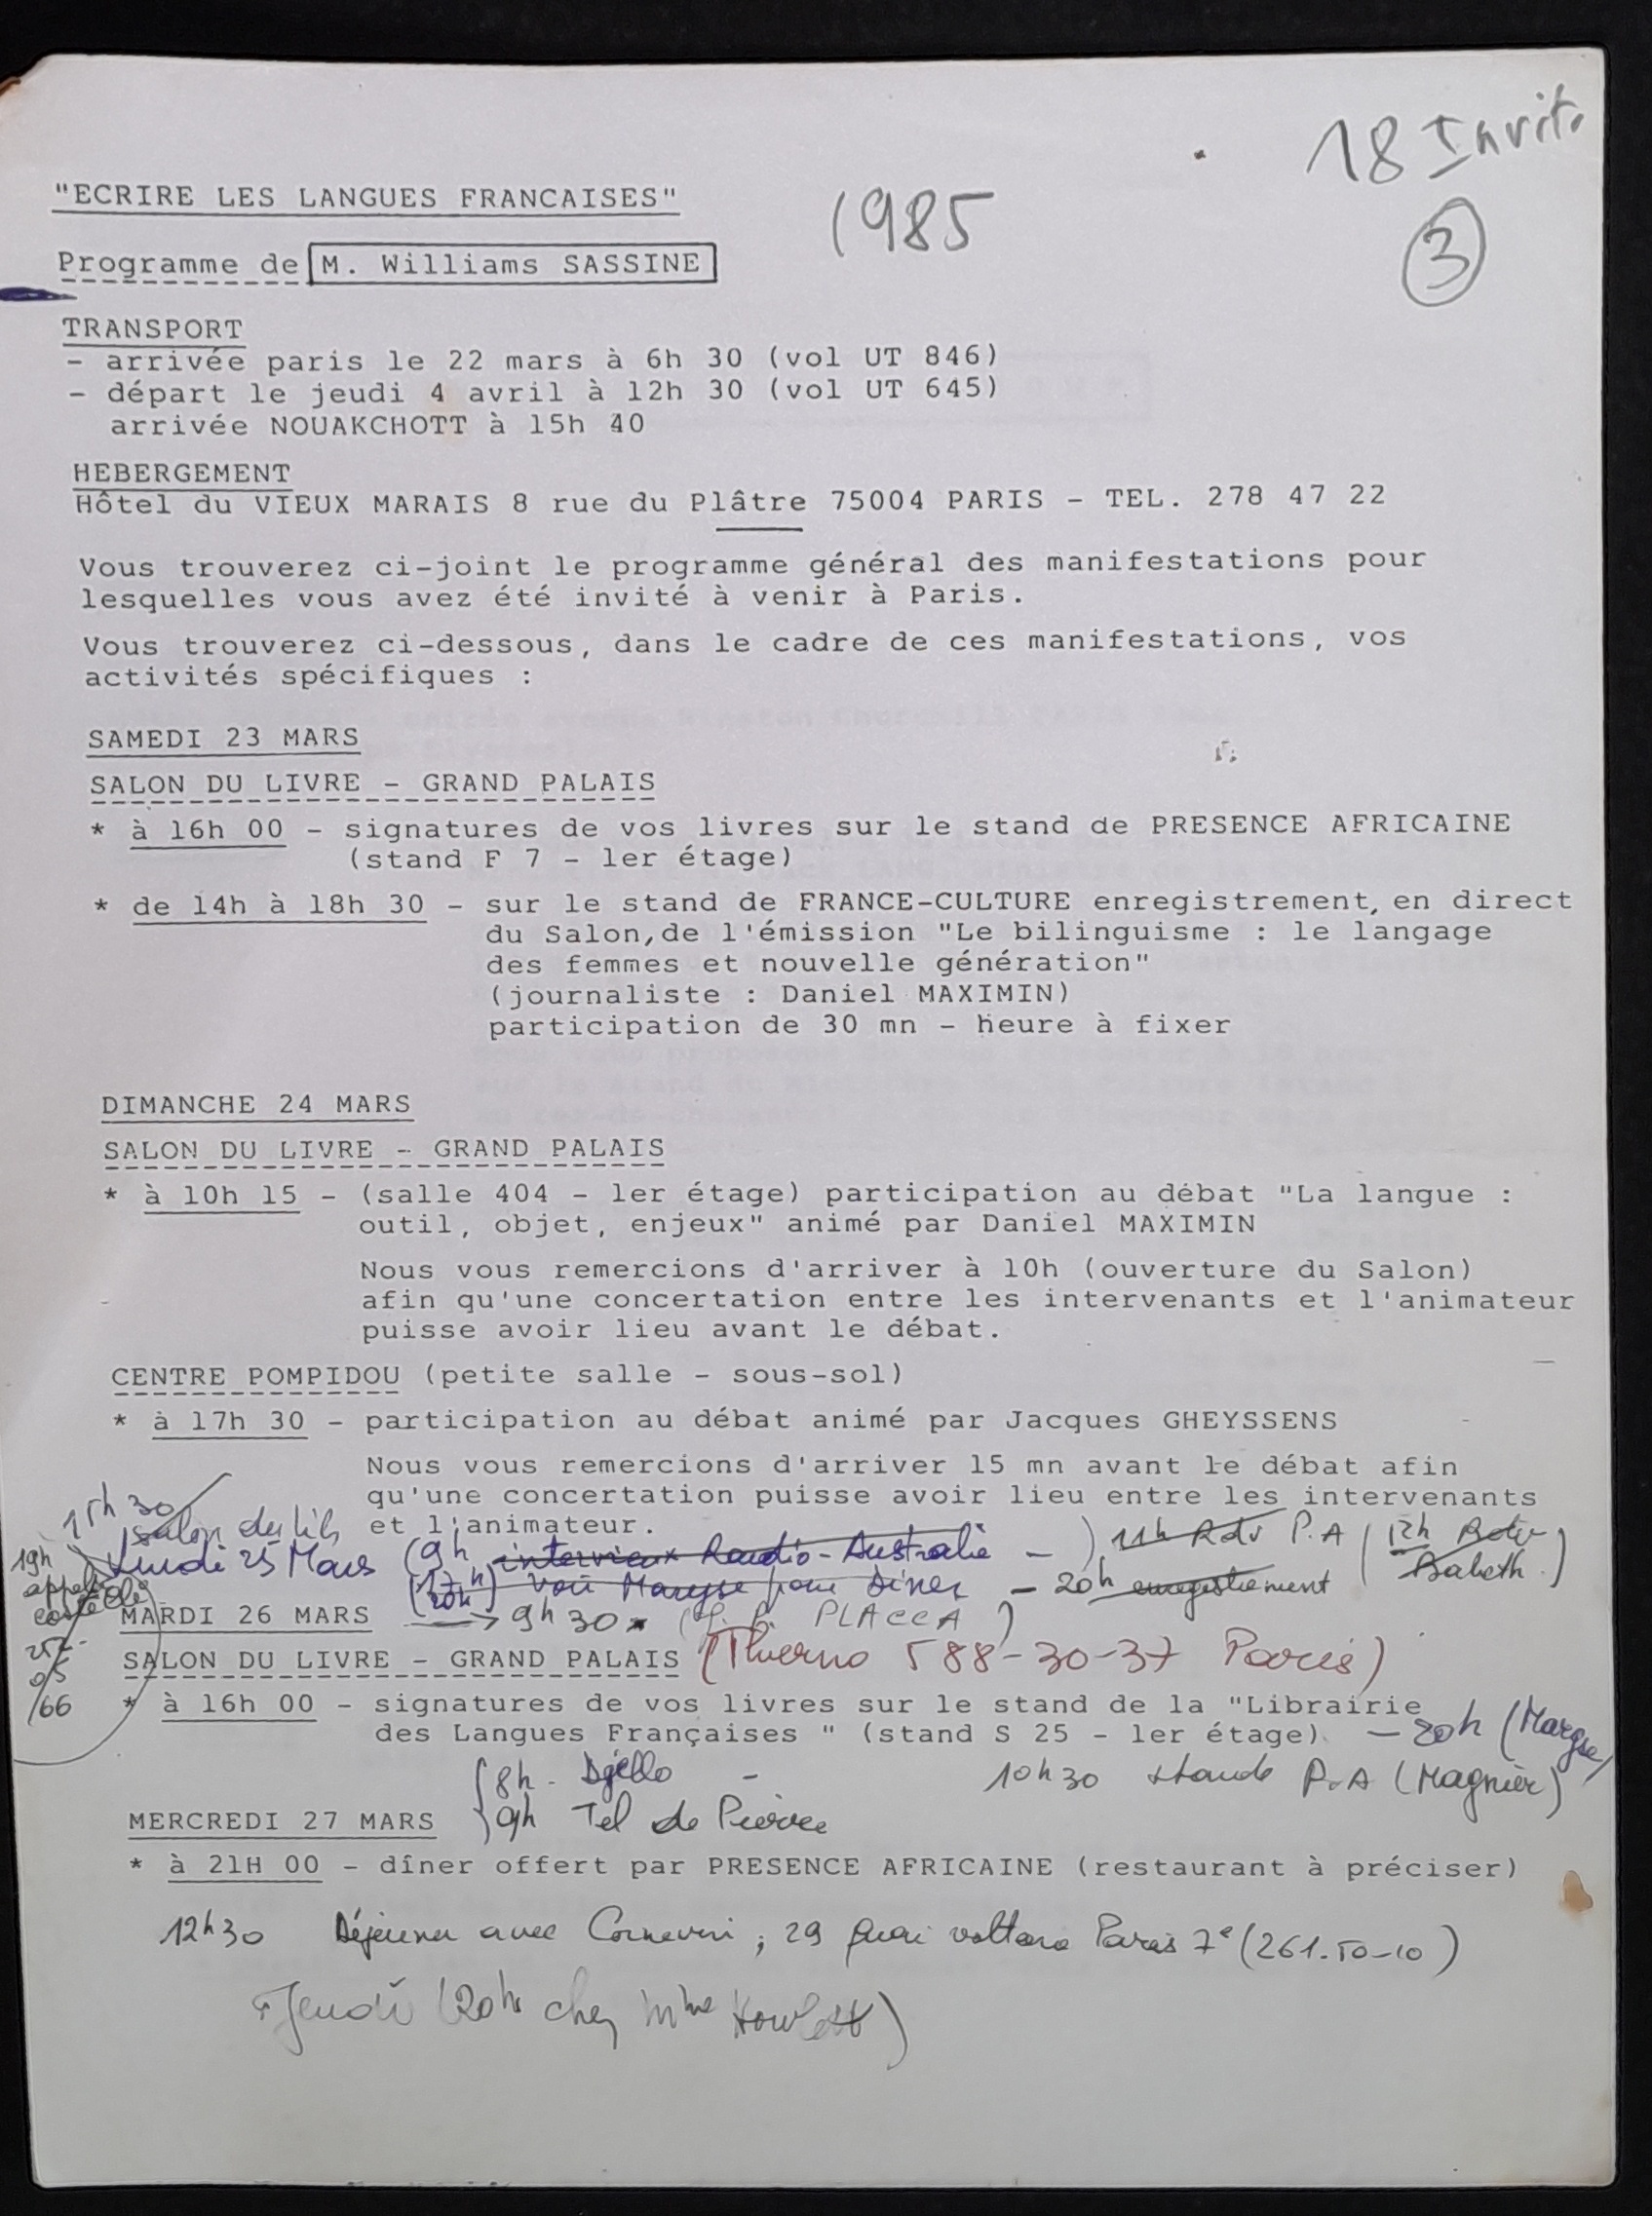 18 Invit.
"ECRIRE LES LANGUES FRANCAISES"
1985
3
Programme de M. Williams SASSINE
TRANSPORT
- arrivée paris le 22 mars à 6h 30 (vol UT 846)
- départ le jeudi 4 avril à 12h 30 (vol UT 645)
arrivée NOUAKCHOTT à 15h 40
HEBERGEMENT
Hôtel du VIEUX MARAIS 8 rue du Plâtre 75004 PARIS - TEL. 278 47 22
Vous trouverez ci-joint le programme général des manifestations pour
lesquelles vous avez été invité à venir à Paris.
Vous trouverez ci-dessous, dans le cadre de ces manifestations, vos
activités spécifiques :
SAMEDI 23 MARS
SALON DU LIVRE - GRAND PALAIS
* à 16h 00 - signatures de vos livres sur le stand de PRESENCE AFRICAINE
(stand F 7 - 1er étage)
* de 14h à 18h 30 - sur le stand de FRANCE-CULTURE enregistrement, en direct
du Salon, de l'émission "Le bilinguisme : le langage
des femmes et nouvelle génération"
(journaliste : Daniel MAXIMIN)
participation de 30 mn - heure à fixer
DIMANCHE 24 MARS
SALON DU LIVRE - GRAND PALAIS
* à 10h 15 - (salle 404 - 1er étage) participation au débat "La langue :
outil, objet, enjeux" animé par Daniel MAXIMIN
Nous vous remercions d'arriver à 10h (ouverture du Salon)
afin qu'une concertation entre les intervenants et l'animateur
puisse avoir lieu avant le débat.
CENTRE POMPIDOU (petite salle - sous-sol)
* à 17h 30 - participation au débat animé par Jacques GHEYSSENS
Nous vous remercions d'arriver 15 mn avant le débat afin
qu'une concertation puisse avoir lieu entre les intervenants
et l'animateur.
15h 30
Salon du
Lundi 25 Mars (9h interview Raudio-Australie - ) 11h Rdv P.A (12h Babeth.)
19h appel
(20h) voir Maryse pour Diner - 20h enregistrement
MARDI 26 MARS → 9h 30 PLACCA )
05
/66
SALON DU LIVRE - GRAND PALAIS (Thierno 588-30-37 Paris)
* à 16h 00 - signatures de vos livres sur le stand de la "Librairie
des Langues Françaises " (stand S 25 - 1er étage). - 20h (Maryse)
8h - Djello - 10h30 stande P.A (Magnier)
9h Tel de Pierre
MERCREDI 27 MARS
* à 21H 00 - dîner offert par PRESENCE AFRICAINE (restaurant à préciser)
12h30 Déjeuner avec Cornevin ; 29 quai voltaire Paris 7e (261-50-10)
Jeudi (20h chez Mme Howlett)